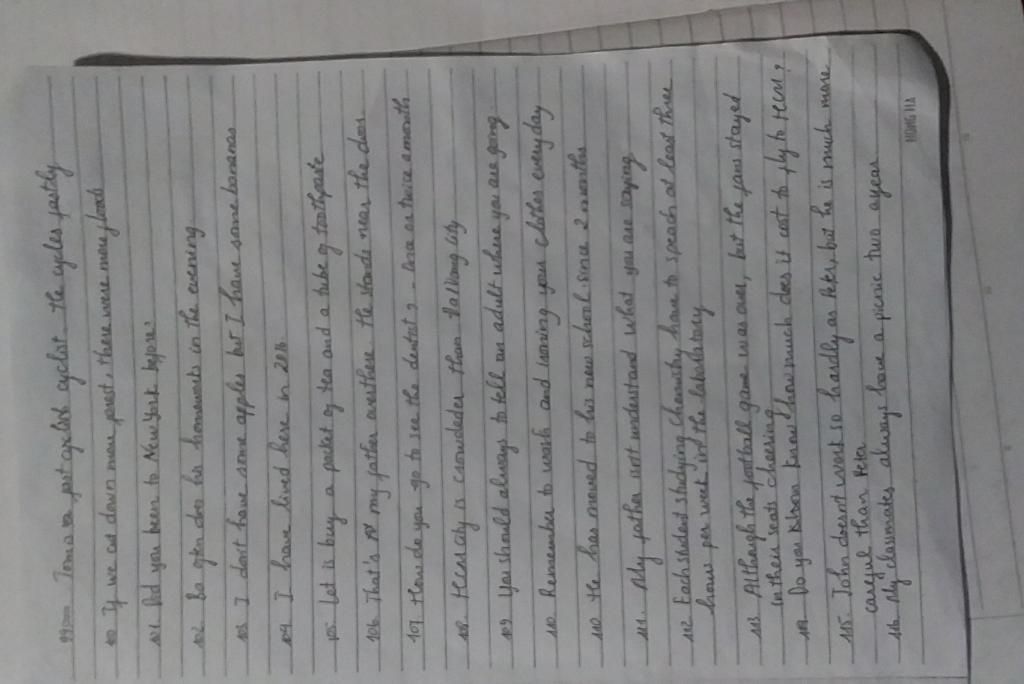 Tom is a fast cyclist cyclist. He cycles fastly
100 If we cut down more forest, there were more floods
101. Did you been to New York before?
102. Ba often do his homeworks in the evening
103 I don't have some apples but I have some bananas
104 I have lived here in 2016
105. Let is buy a packet of tea and a tube of toothpaste
106. That's my father overthere. He stands near the door
107. How do you go to see the dentist? - Once or twice a month
108. city is crowdeder than city
109 You should always to tell an adult where you are going.
110. Remember to wash and ironing your clothes every day
110 He has moved to his new school since 2 months
111. My father isn't understand what you are saying
112 Each student studying chemistry have to speach at least three
hours per week in the labobatory
113 Although the football game was over, but the fans stayed
in their seats cheering
114. Do you know how much does it cost to fly to HCM?
115. John doesn't work so hardly as Peter, but he is much more
careful than Peter
116. My classmates always have a picnic two a year
HONG HA